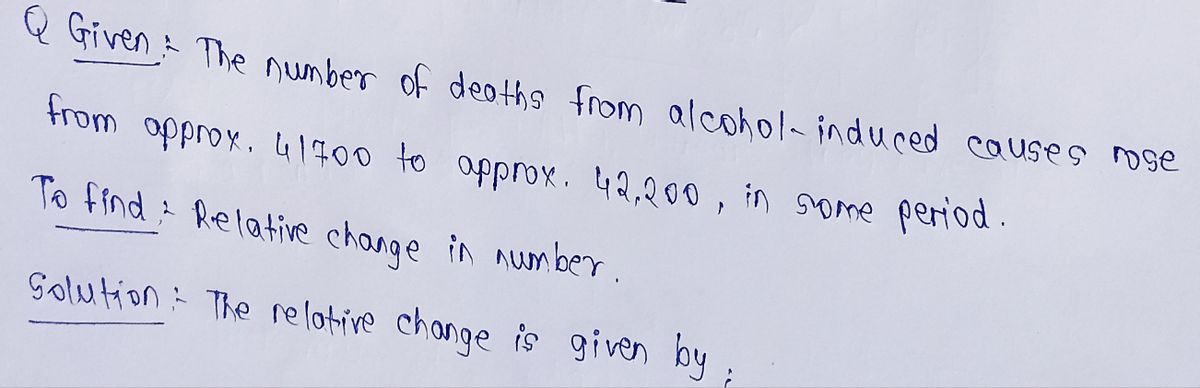 Q Given :- The number of deaths from alcohol-induced causes rose
from approx. 41700 to approx. 42,200, in some period.
To find :- Relative change in number.
Solution :- The relative change is given by ;